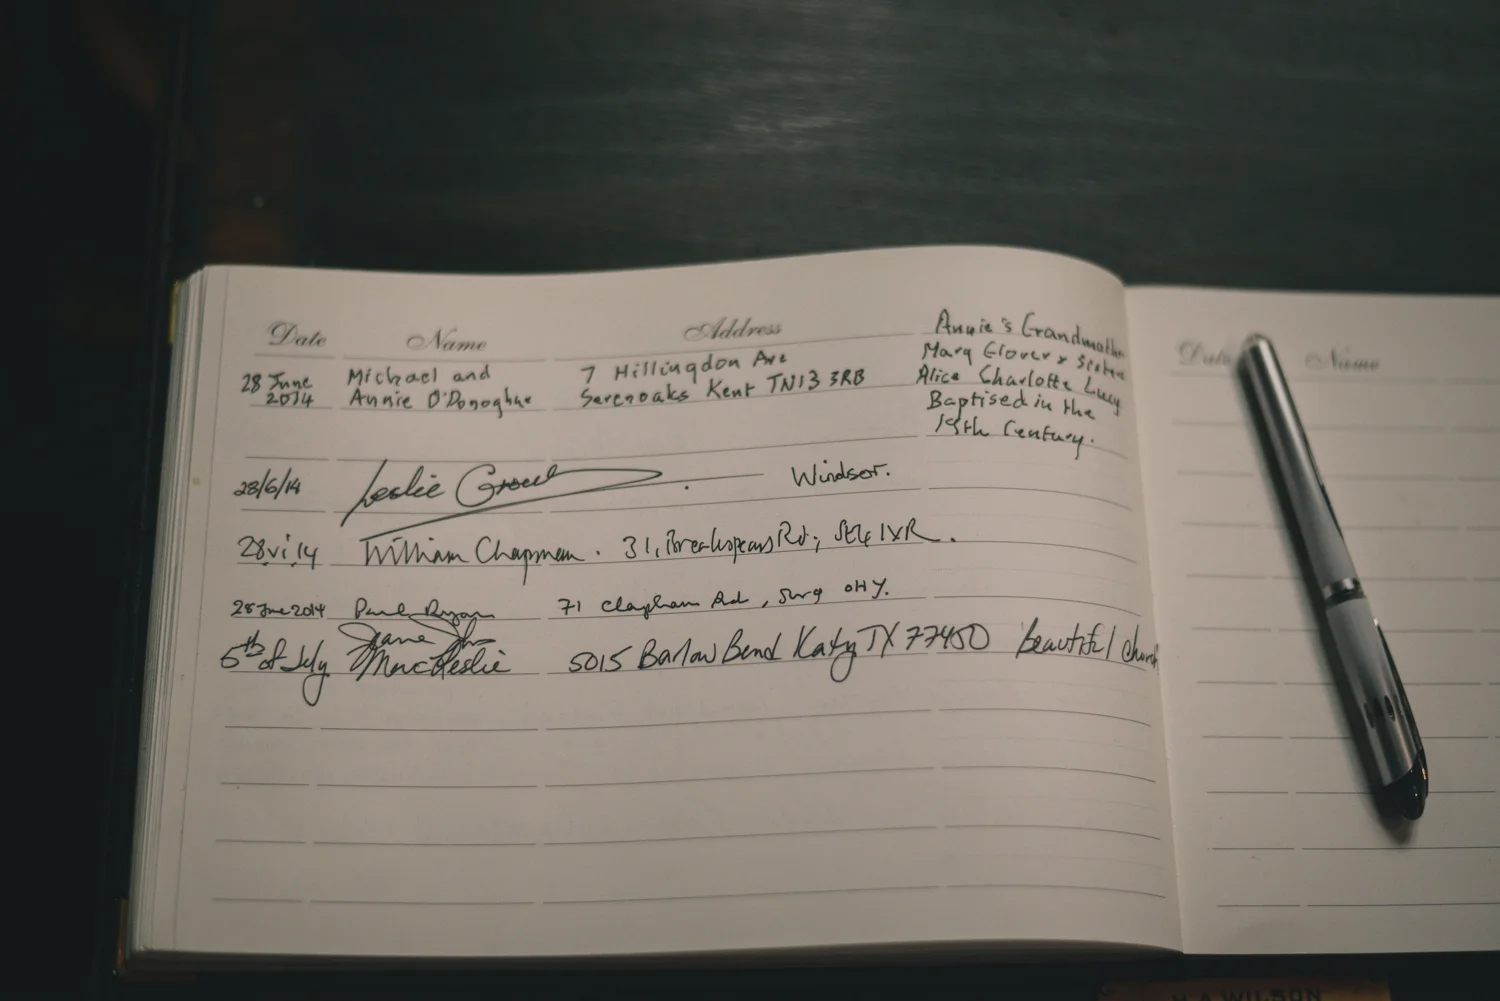 Date Name Address
28 June 2014
Michael and
Annie O'Donoghue
7 Hillingdon Ave
Sevenoaks Kent TN13 3RB
Annie's Grandmother
Mary Glover & Sister
Alice Charlotte Lucy
Baptised in the
19th Century.
28/6/14 Leslie Windsor.
28.vi.14 William Chapman. 31, Breakspears Rd, SE4 1XR.
28 June 2014 Paul Ryan 71 Clapham Rd, SW9 0HY.
5th of July Mackeslie 5015 Barlow Bend Katy TX 77450 beautiful church
Date Name
H A WILSON